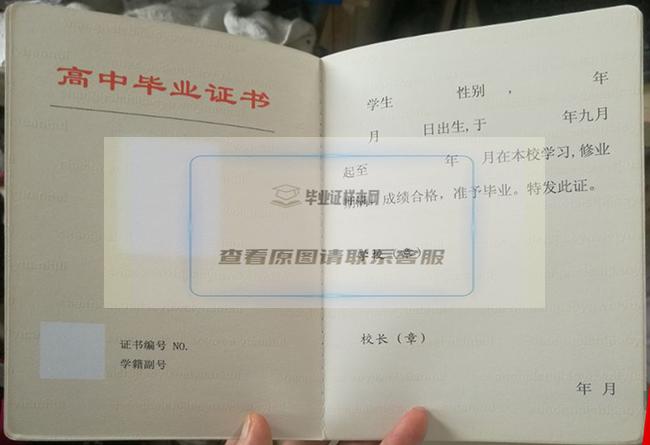 高中毕业证书
证书编号 NO.
学籍副号
学生 性别 , 年
月 日出生,于 年九月
起至 年 月在本校学习,修业
期满,成绩合格，准予毕业。特发此证。
毕业证样本网
查看原图请联系客服
学校（章）
校长（章）
年 月